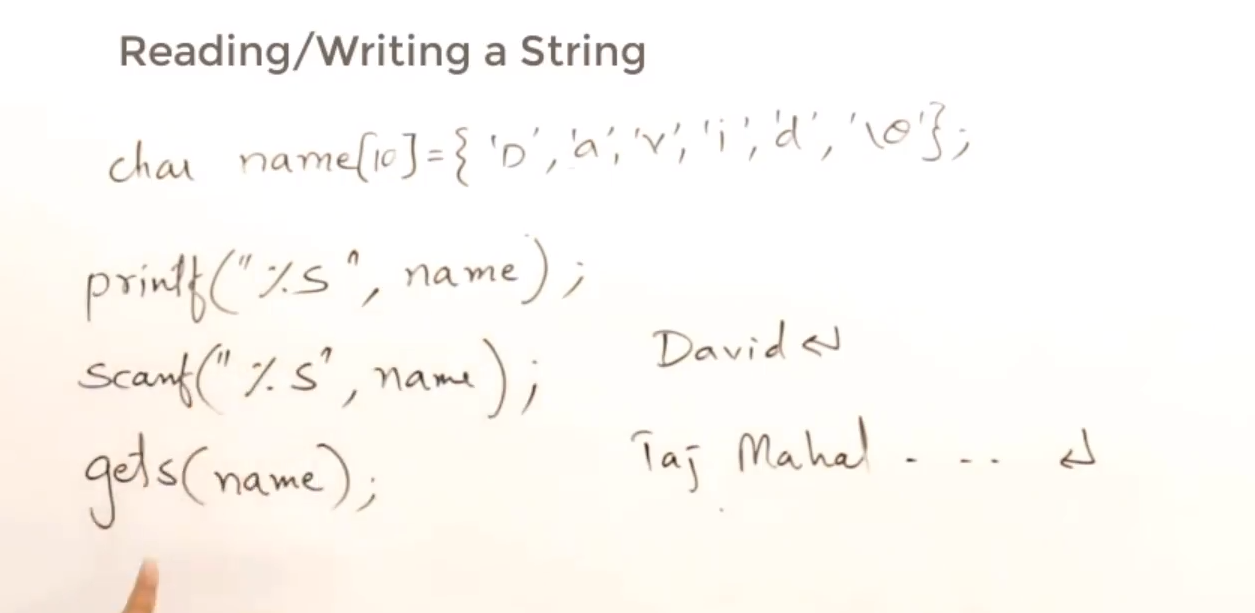 Reading/Writing a String
char name[10]={ 'D', 'a', 'v', 'i', 'd', '\0'};
printf("%s", name);
scanf("%s", name); David ↵
gets(name); Taj Mahal . - .. ↵